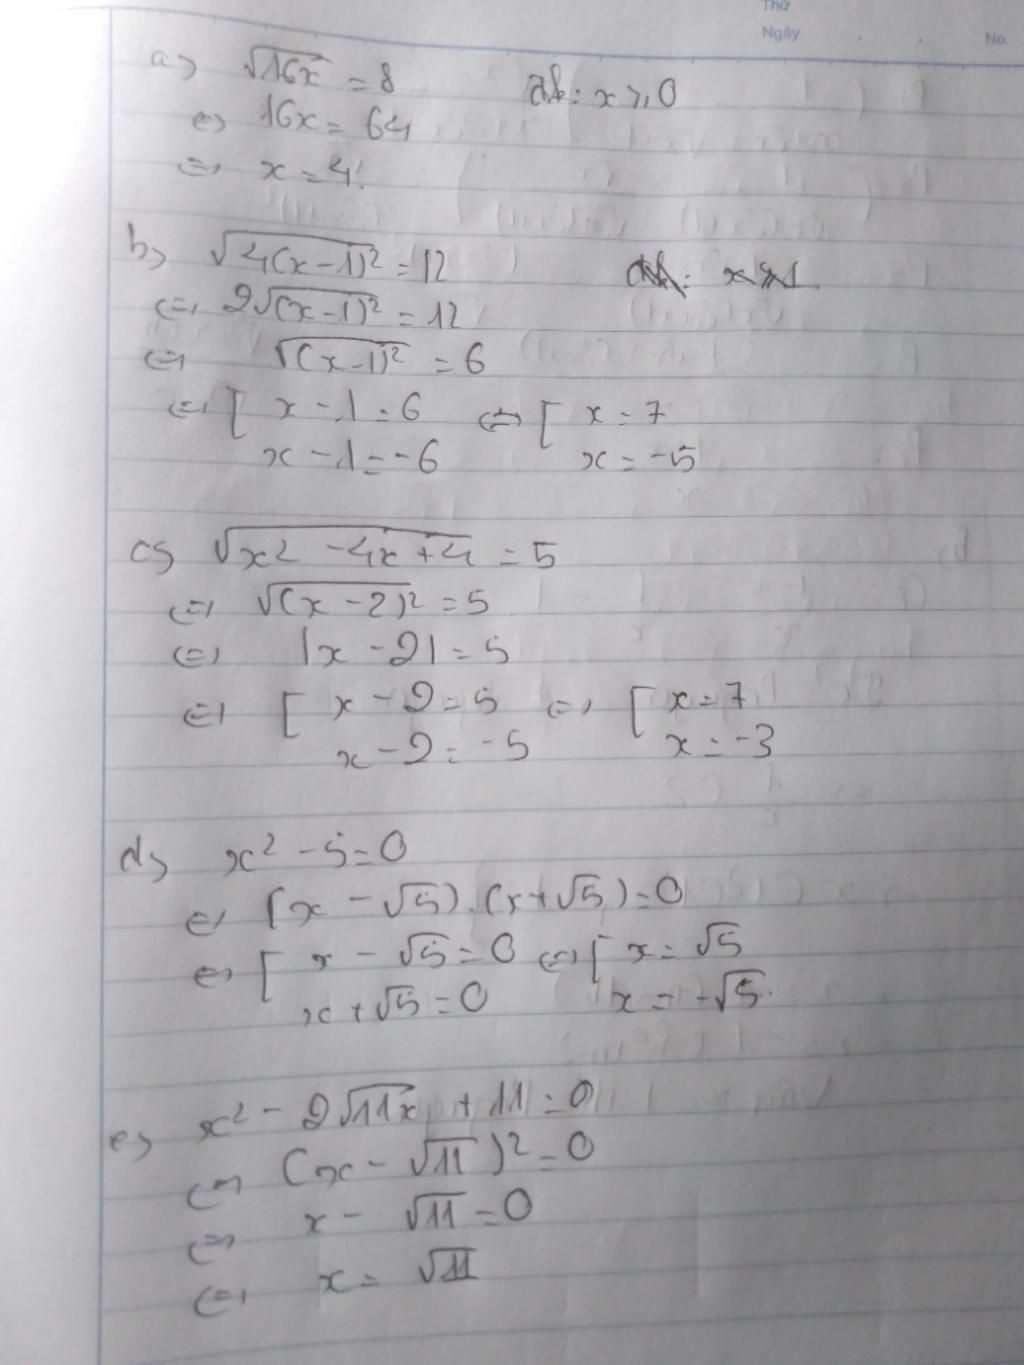 Thứ
Ngày . . No.
a> √16x = 8 đk: x ⩾ 0
<=> 16x = 64
<=> x = 4.
b> √4(x-1)² = 12 đk: x ⩾ 1
<=> 2√(x-1)² = 12
<=> √(x-1)² = 6
<=> [ x - 1 = 6 <=> [ x = 7
x - 1 = -6 x = -5
c> √x² - 4x + 4 = 5
<=> √(x - 2)² = 5
<=> |x - 2| = 5
<=> [ x - 2 = 5 <=> [ x = 7
x - 2 = -5 x = -3
d> x² - 5 = 0
<=> (x - √5).(x + √5) = 0
<=> [ x - √5 = 0 <=> [ x = √5
x + √5 = 0 x = -√5.
e> x² - 2√11x + 11 = 0
<=> (x - √11)² = 0
<=> x - √11 = 0
<=> x = √11